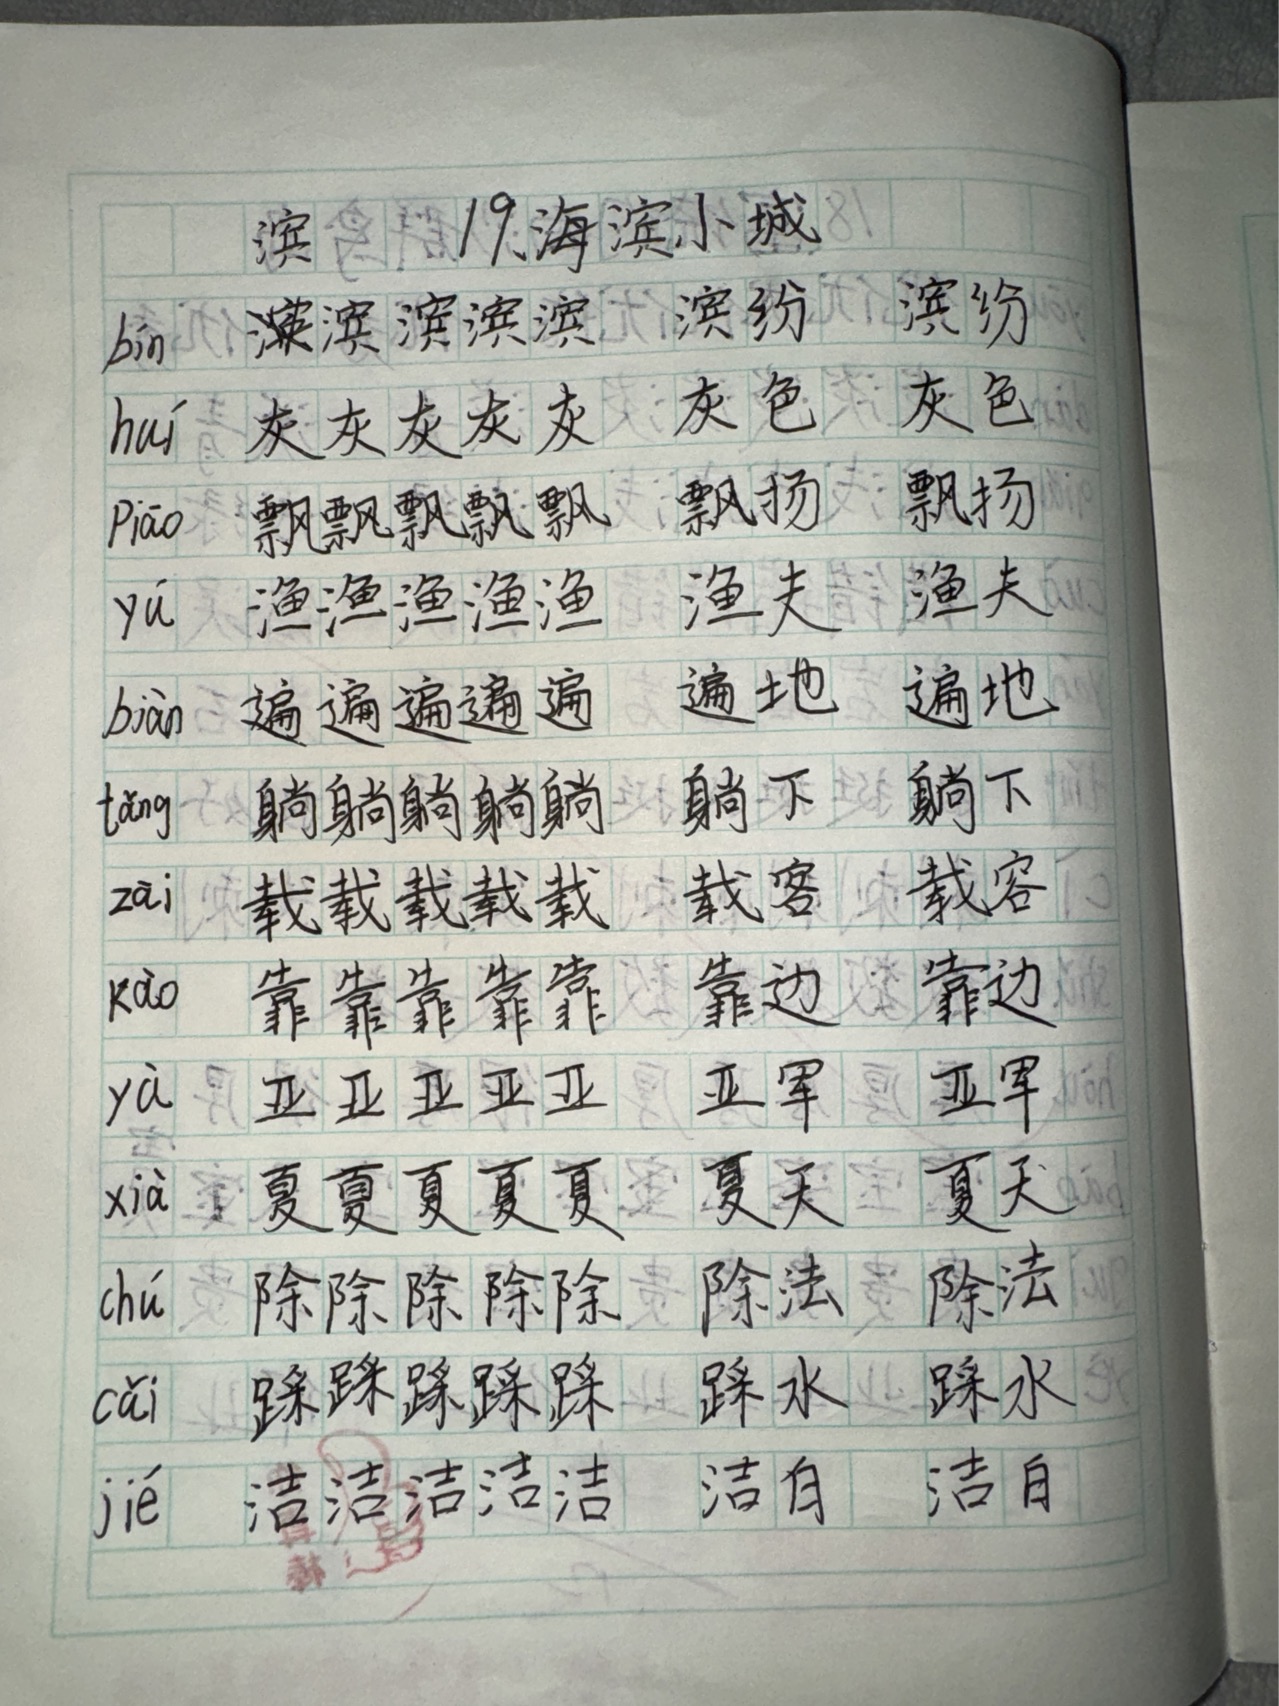 滨 19、海滨小城
bīn 滨滨滨滨 滨纷 滨纷
huí 灰灰灰灰灰 灰色 灰色
Piāo 飘飘飘飘飘 飘扬 飘扬
yú 渔渔渔渔渔 渔夫 渔夫
biàn 遍遍遍遍遍 遍地 遍地
tǎng 躺躺躺躺躺 躺下 躺下
zài 载载载载载 载客 载客
Kào 靠靠靠靠靠 靠边 靠边
yà 亚亚亚亚亚 亚军 亚军
xià 夏夏夏夏夏 夏天 夏天
chú 除除除除除 除法 除法
cǎi 踩踩踩踩踩 踩水 踩水
jié 洁洁洁洁洁 洁白 洁白